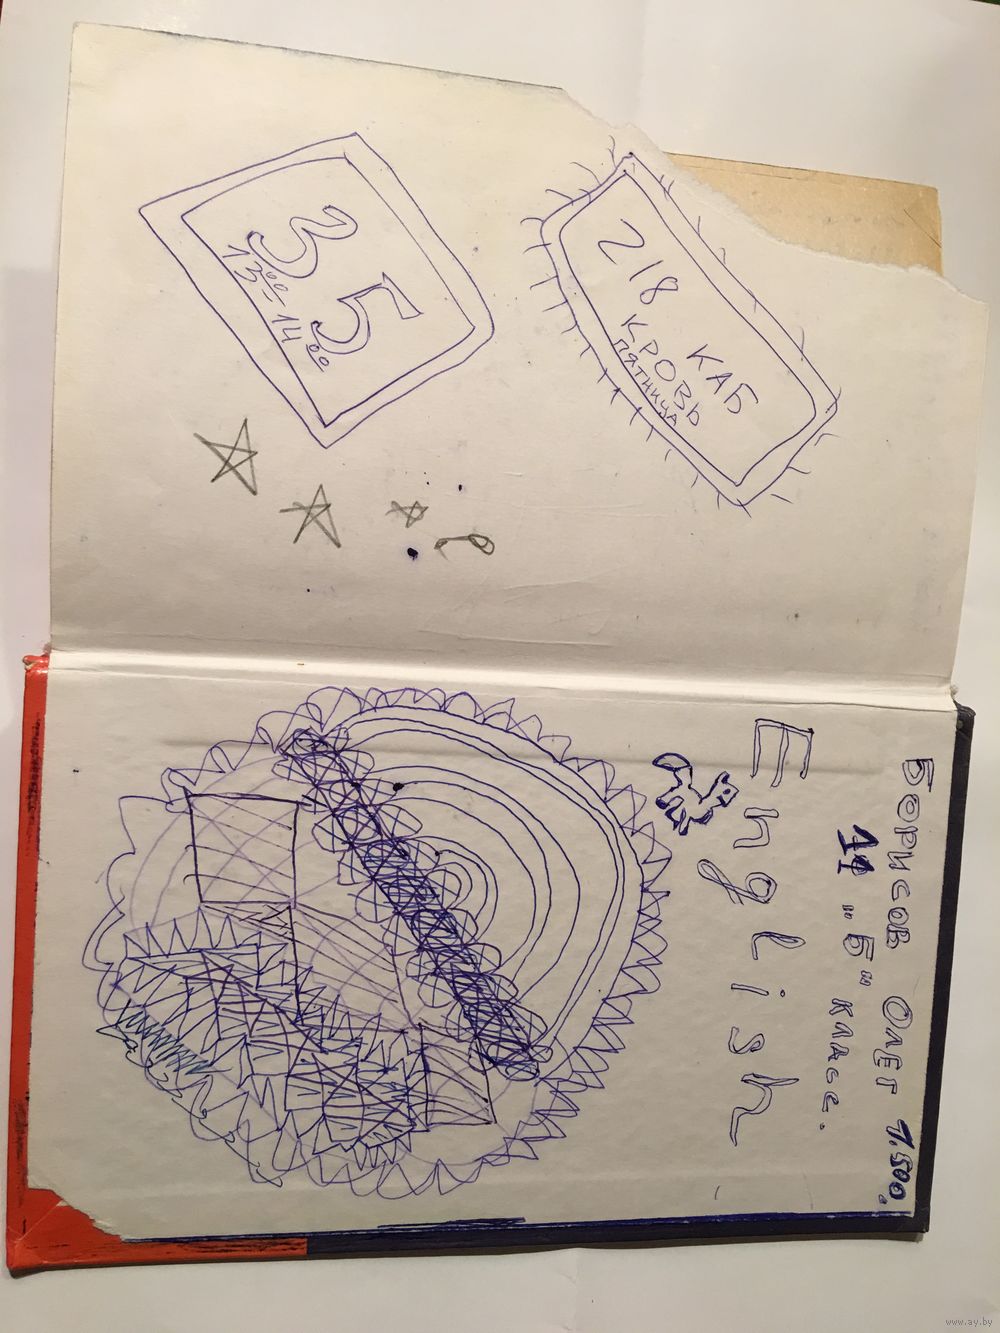 218 КАБ
КРОВЬ
ПЯТНИЦА
35
13⁰⁰-14⁰⁰
БОРИСОВ ОЛЕГ 1.500.
11 "Б" КЛАСС.
English
www.ay.by